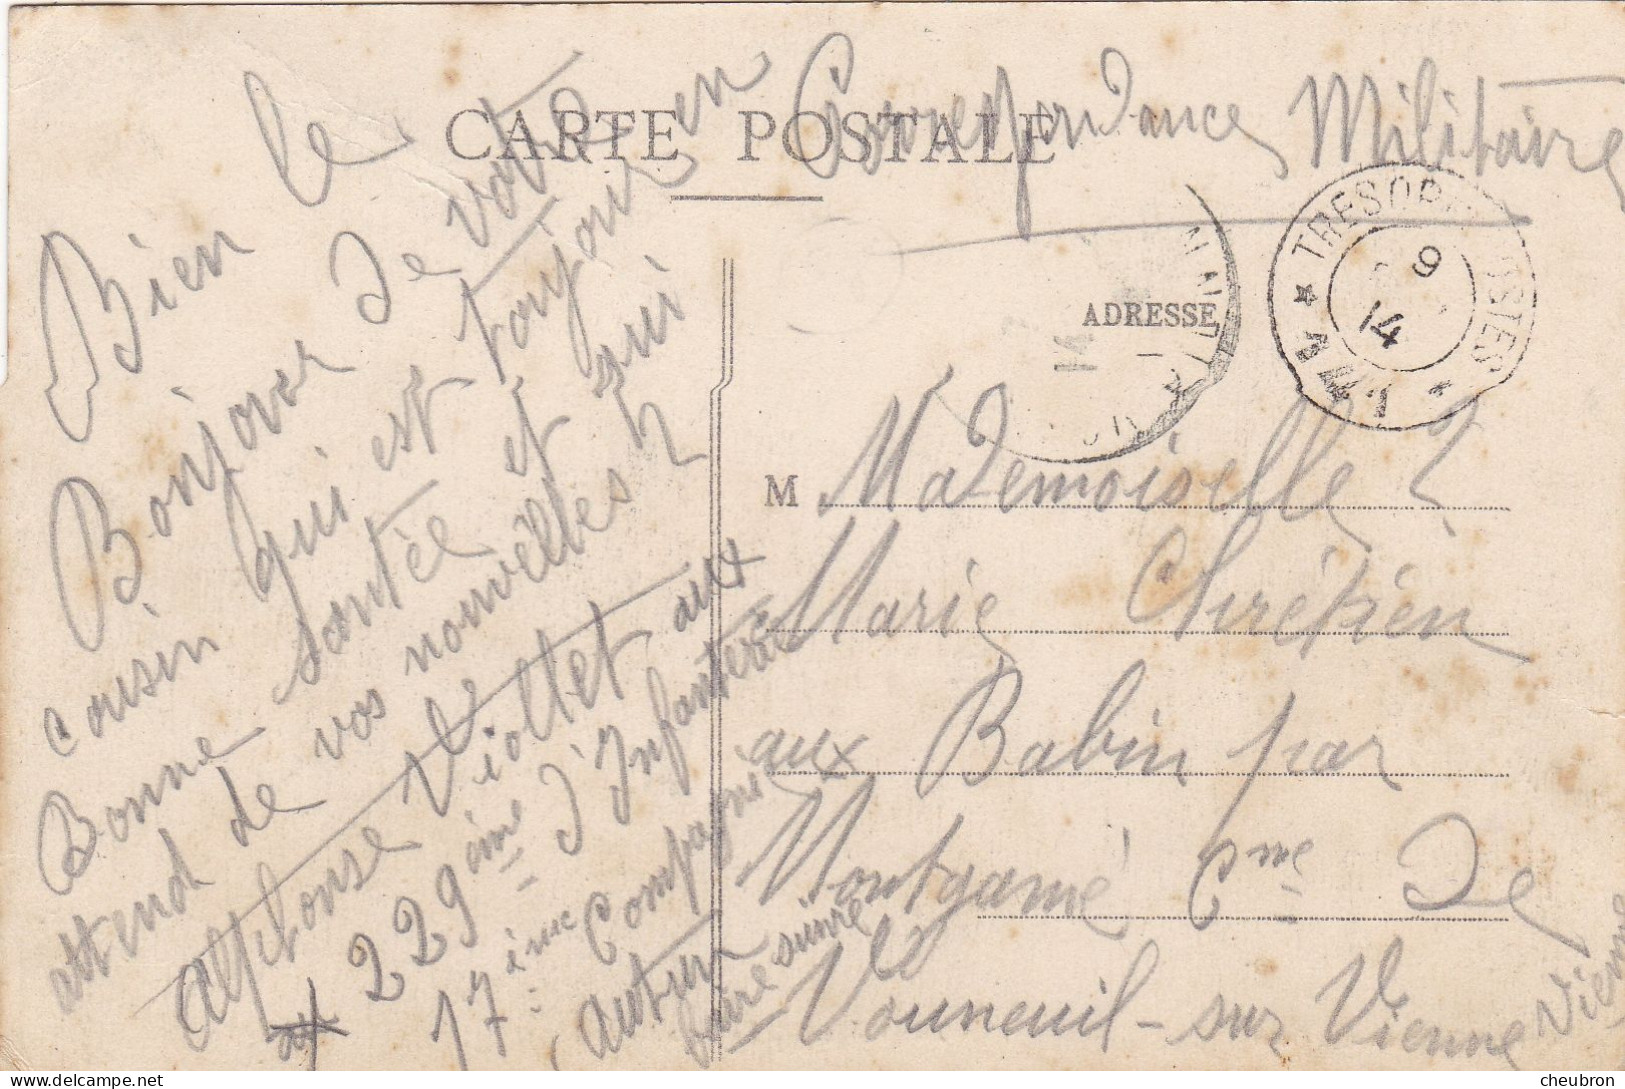 CARTE POSTALE
Correspondance Militaire
Bien le
Bonjour de votre
cousin qui est toujour en
Bonne santée et qui
attend de vos nouvèlles
Alphonse Viollet aux
229ème d'Infanterie
17ème Compagnie
Autun
faire suivre
TRESOR ET POSTES
9
14
ADRESSE
M Mademoiselle
Marie Chrétien
aux Babin par
Montgamé Cme de
Vouneuil-sur Vienne
Vienne
cheubron - delcampe.net